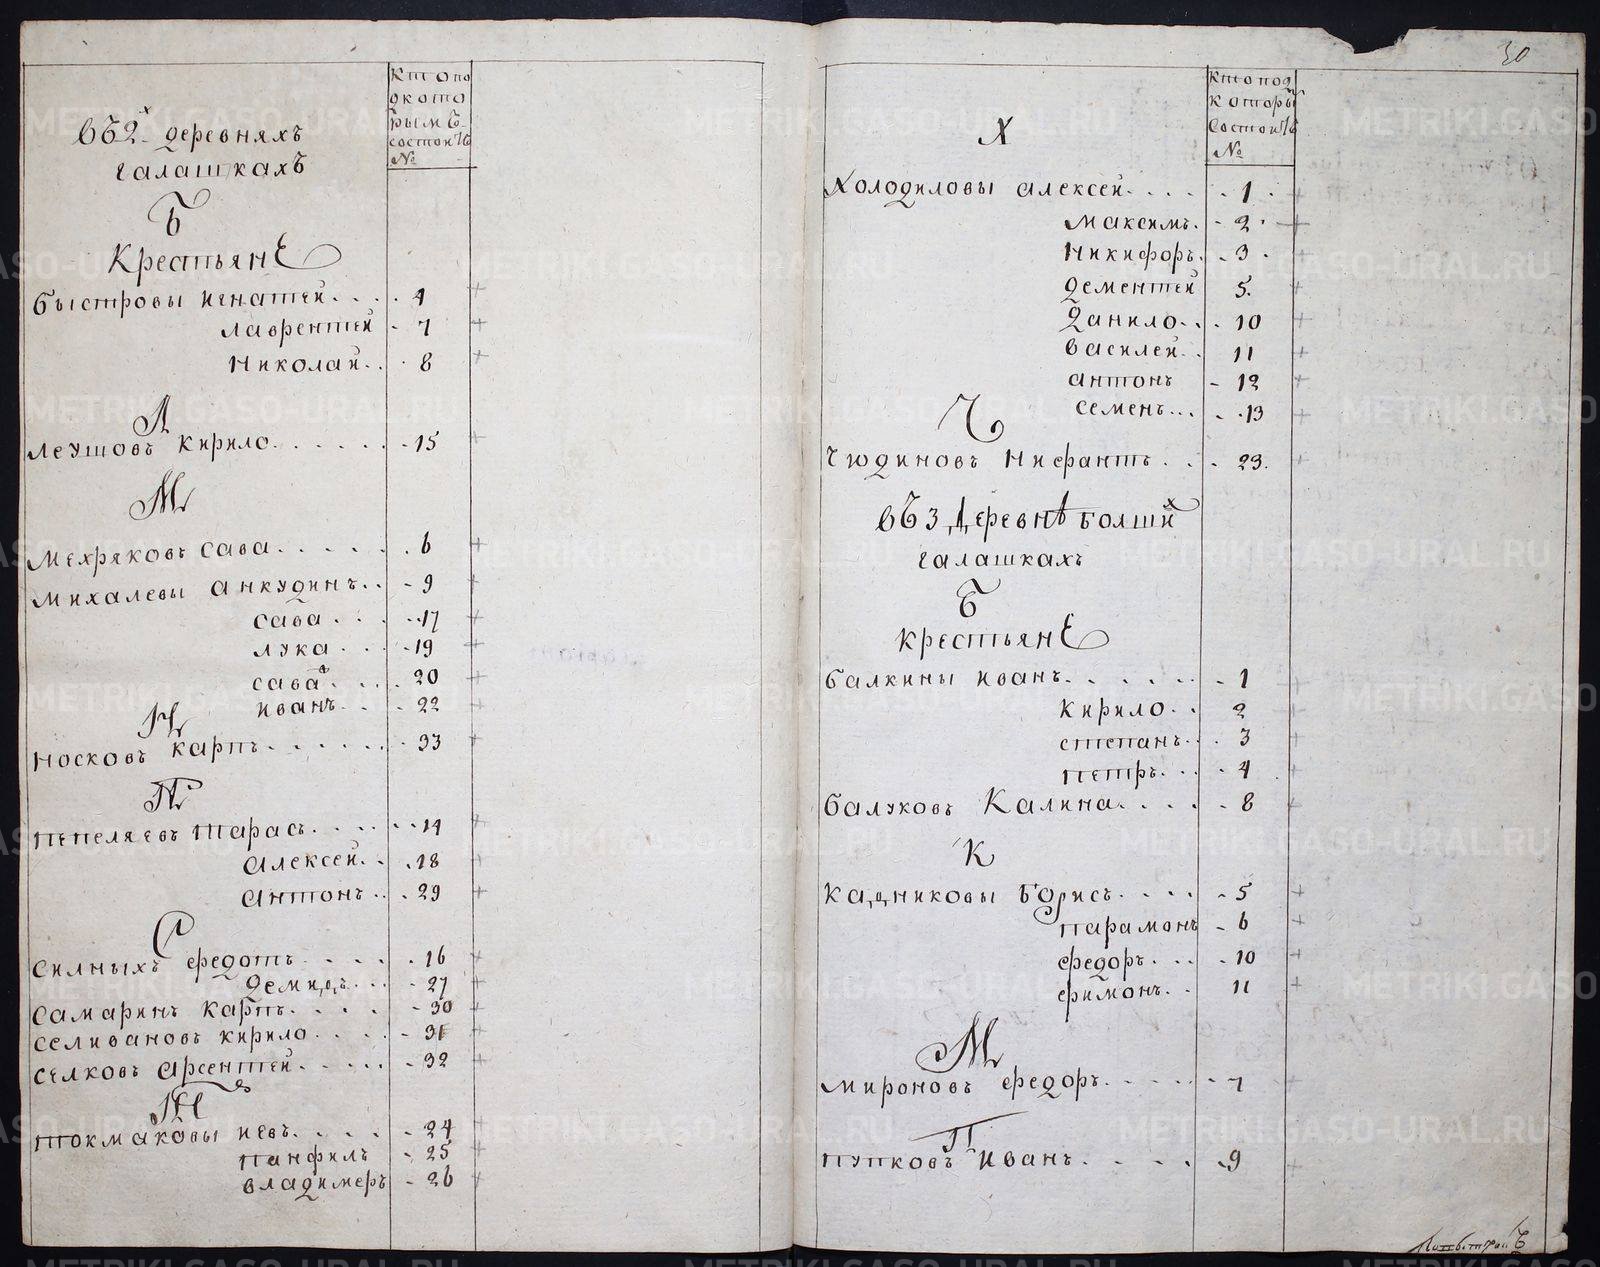 въ 2х деревняхъ
галашкахъ
кто по
дкото
рымъ
состоитъ
№
Б
Крестьяне
быстровы игнатей . . . . 4
лаврентей - 7
николай . . 8
Л
леушовъ кирило . . . . . . - 15
М
мехряковъ сава . . . . . . 6
михалевы анкудинъ . . - 9
сава . . . 17
лука . . . - 19
сава . . . . 20
иванъ . . - 22
Н
носковъ карпъ . . . . . . 33
П
пепеляевъ тарасъ . . . . - 14
алексей . . . 18
антонъ . . - 29
С
силныхъ федотъ . . . . . 16
демидъ . . . - 27
самаринъ карпъ . . . . - 30
селивановъ кирило . . . . - 31
селковъ арсентей . . . . . - 32
Т
токмаковы иевъ . . . . - 24
панфилъ - 25
владимеръ - 26
30
кто под
которы
состоитъ
№
Х
холодиловы алексей . . . . - 1 .
максимъ . - 2 .
никифоръ . . 3 .
дементей 5 .
данило . . . 10
василей . . 11
антонъ - 12
семенъ . . . - 13
Ч
чюдиновъ нифантъ . . . . 23 .
въ 3 деревнѣ болших
галашкахъ
Б
крестьяне
балкины иванъ . . . . . . - 1
кирило . . 2
степанъ . . . 3
петръ . . . - 4
балуковъ калина . . . . - 8
К
кадниковы борисъ . . . . - 5
парамонъ - 6
федоръ . . . - 10
фимонъ . . 11
М
мироновъ федоръ . . . . . - 7
П
пупковъ иванъ . . . . . 9
METRIKI.GASO-URAL.RU